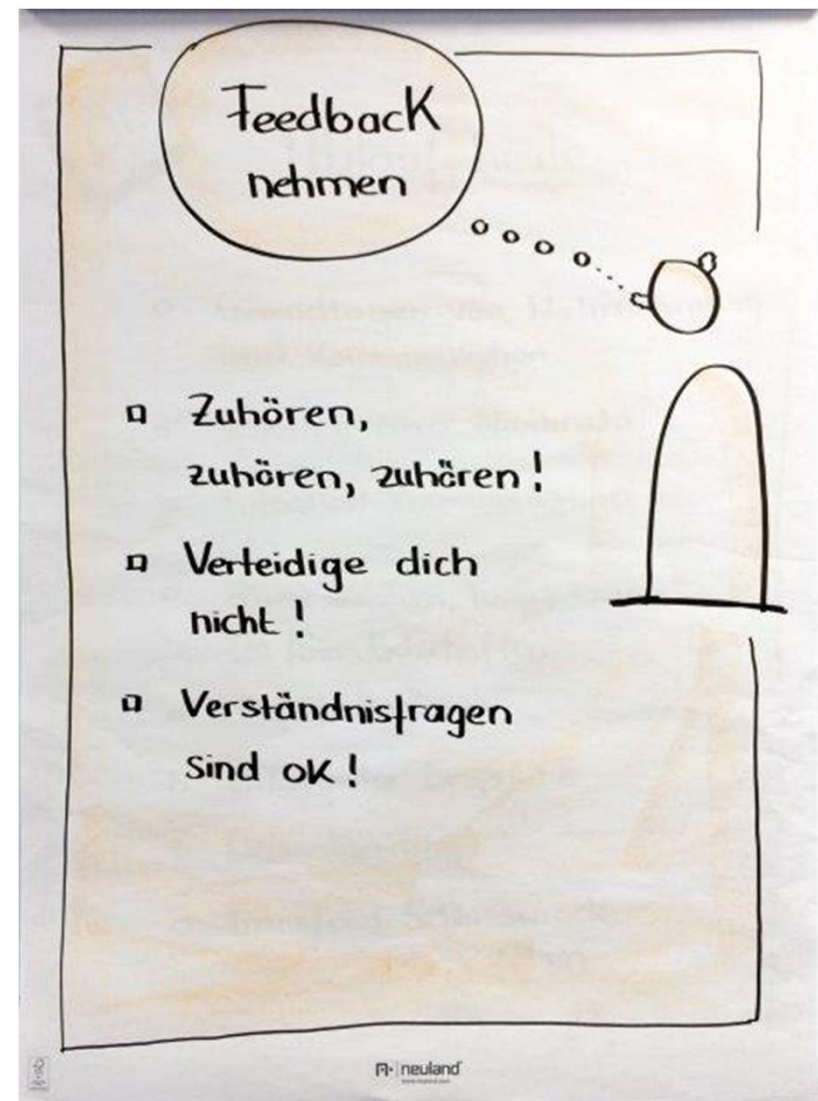 Feedback
nehmen
Zuhören,
zuhören, zuhören!
Verteidige dich
nicht!
Verständnisfragen
sind ok!
neuland